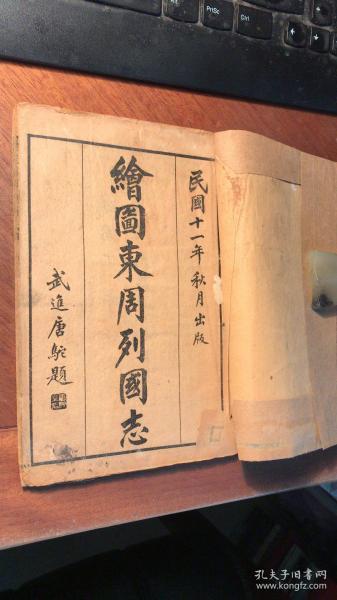 民國十一年秋月出版
繪圖東周列國志
武進唐駝題
PrtSc
Ctrl
孔夫子旧书网
www.kongfz.com